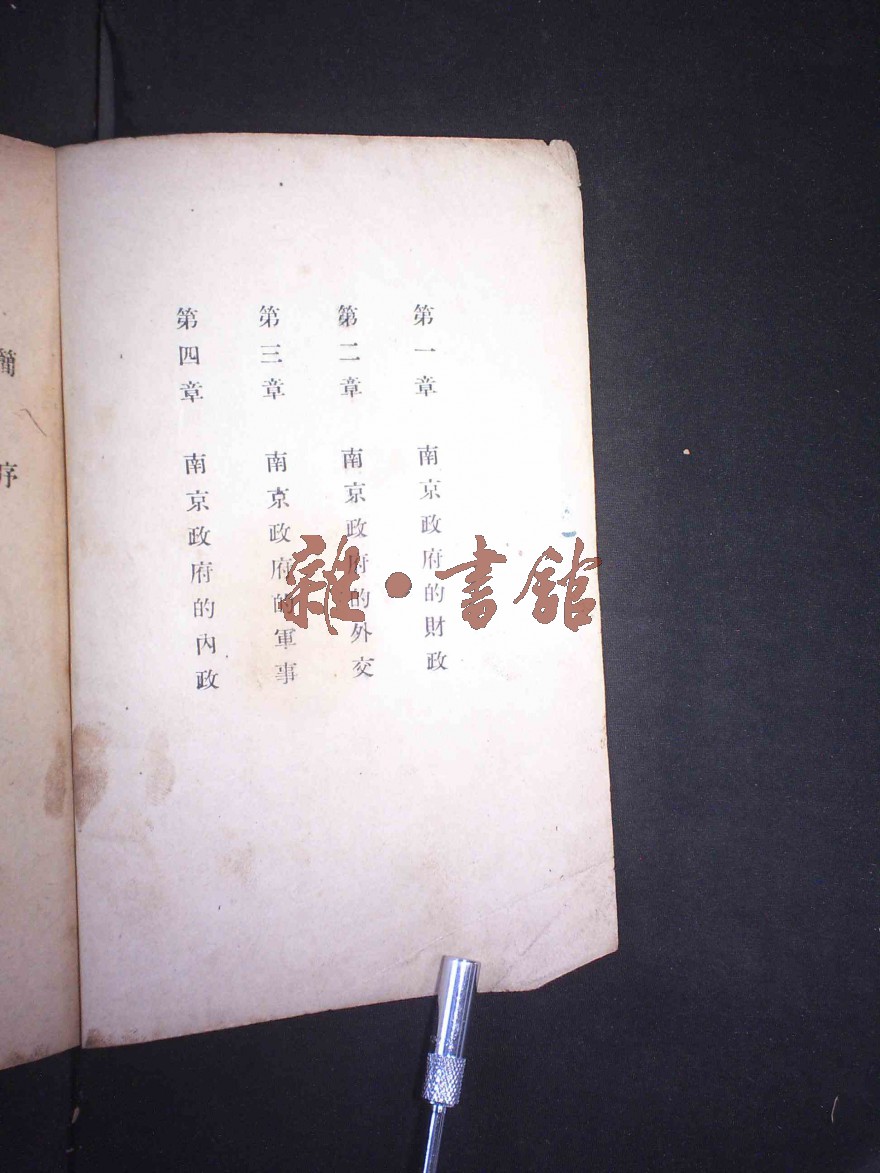 第一章 南京政府的財政
第二章 南京政府的外交
第三章 南京政府的軍事
第四章 南京政府的內政
簡序
雜·書館